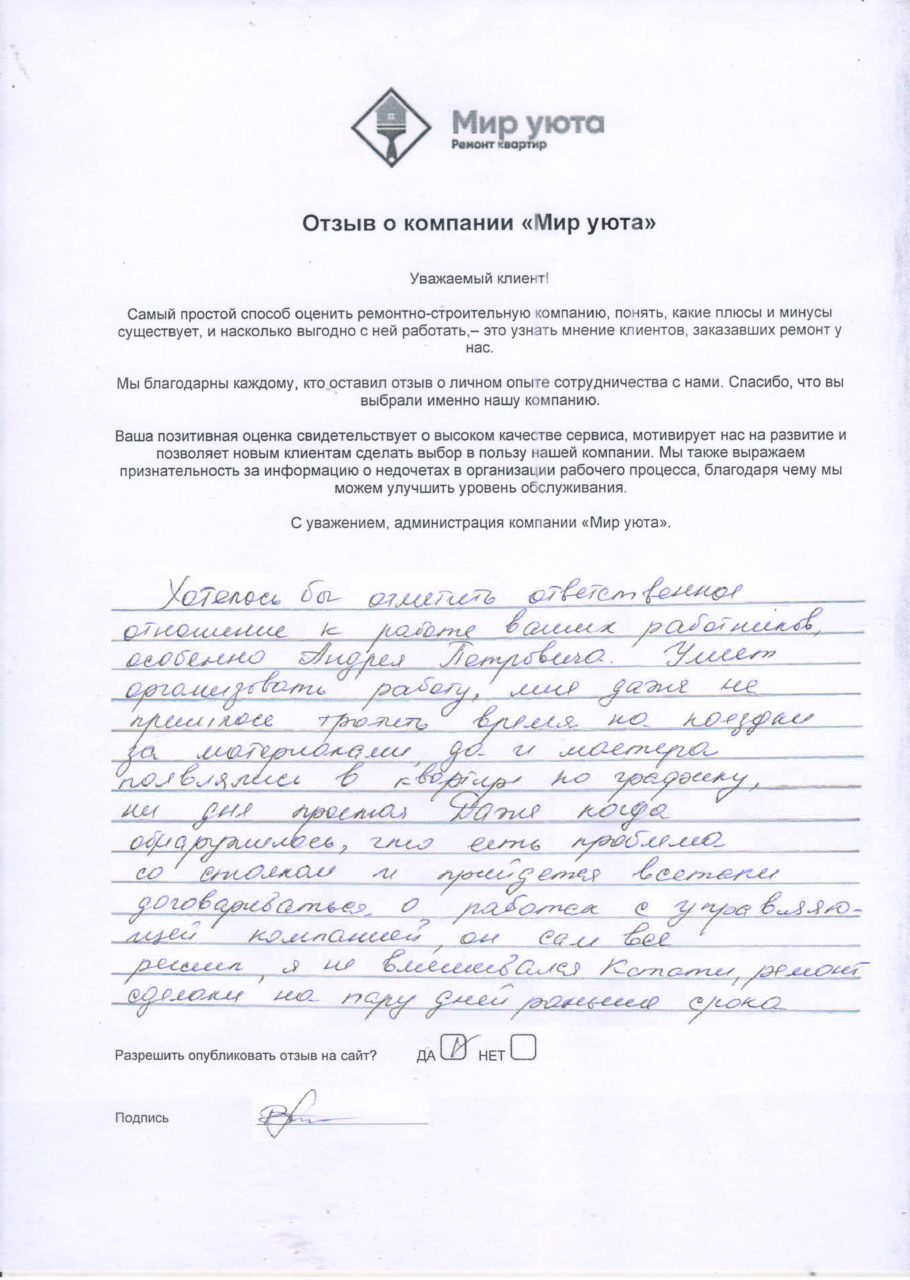 Мир уюта
Ремонт квартир
Отзыв о компании «Мир уюта»
Уважаемый клиент!
Самый простой способ оценить ремонтно-строительную компанию, понять, какие плюсы и минусы
существует, и насколько выгодно с ней работать,– это узнать мнение клиентов, заказавших ремонт у
нас.
Мы благодарны каждому, кто оставил отзыв о личном опыте сотрудничества с нами. Спасибо, что вы
выбрали именно нашу компанию.
Ваша позитивная оценка свидетельствует о высоком качестве сервиса, мотивирует нас на развитие и
позволяет новым клиентам сделать выбор в пользу нашей компании. Мы также выражаем
признательность за информацию о недочетах в организации рабочего процесса, благодаря чему мы
можем улучшить уровень обслуживания.
С уважением, администрация компании «Мир уюта».
Хотелось бы отметить ответственное
отношение к работе ваших работников,
особенно Андрея Петровича. Умеет
организовать работу, мне даже не
пришлось тратить время на поездки
за материалами, да и мастера
появлялись в квартире по графику,
ни дня простоя Даже когда
обнаружилось, что есть проблема
со стояком и прийдется всетаки
договариваться о работах с управляю-
щей компанией, он сам все
решил, я не вмешивался Кстати, ремонт
сделали на пару дней раньше срока
Разрешить опубликовать отзыв на сайт? ДА НЕТ
Подпись